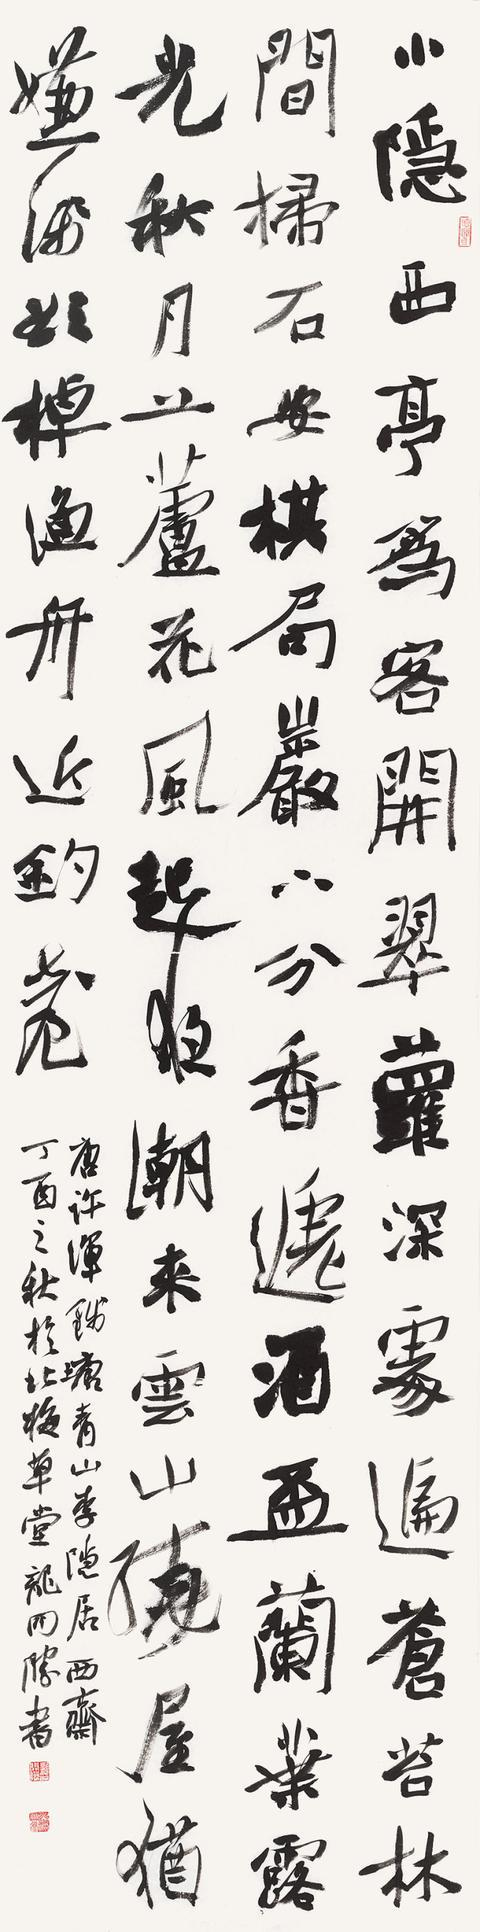 小隱西亭為客開翠蘿深處遍蒼苔林
間掃石安棋局巖下分香遞酒盃蘭葉露
光秋月上蘆花風起夜潮來雲山繞屋猶
嫌淺欲棹漁舟近釣臺
唐許渾錢塘青山李隱居西齋
丁酉之秋於北梅草堂龍開勝書